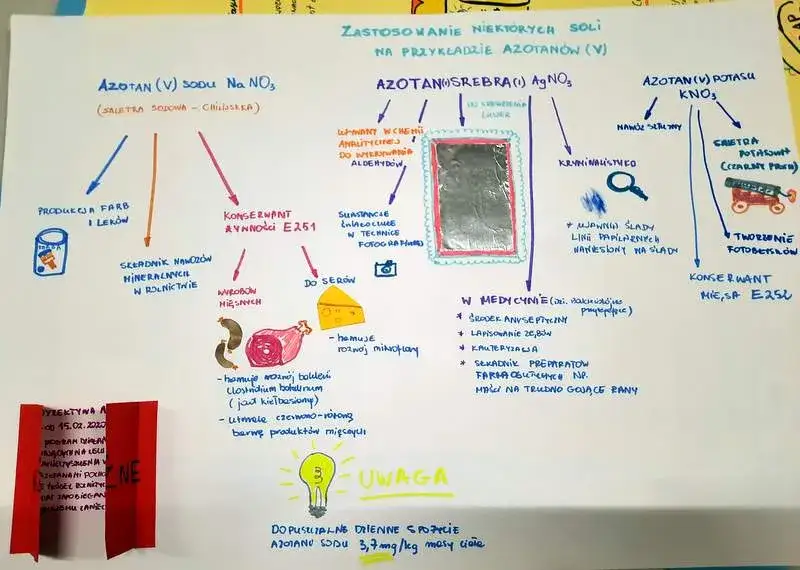 ZASTOSOWANIE NIEKTÓRYCH SOLI
NA PRZYKŁADZIE AZOTANÓW (V)
AZOTAN (V) SODU NaNO₃
(SALETRA SODOWA - CHILIJSKA)
PRODUKCJA FARB
I LEKÓW
FARBA
SKŁADNIK NAWOZÓW
MINERALNYCH
W ROLNICTWIE
KONSERWANT
ŻYWNOŚCI E251
WYROBÓW
MIĘSNYCH
- hamuje rozwój bakterii
clostridium botulinum
(jad kiełbasiany)
- utrwala czerwono-różową
barwę produktów mięsnych
DO SERÓW
- hamuje
rozwój mikroflory
AZOTAN(V)SREBRA(I) AgNO₃
UŻYWANY W CHEMII
ANALITYCZNEJ
DO WYKRYWANIA
ALDEHYDÓW
SUBSTANCJE
ŚWIATŁOCZUŁE
W TECHNICE
FOTOGRAFICZNEJ
LUSTER
W MEDYCYNIE
* ŚRODEK ANTYSEPTYCZNY
* LAPISOWANIE ZĘBÓW
* KAUTERYZACJA
* SKŁADNIK PREPARATÓW
FARMACEUTYCZNYCH NP.
MAŚCI NA TRUDNO GOJĄCE RANY
KRYMINALISTYKA
* UJAWNIA ŚLADY
LINII PAPILARNYCH
NANIESIONY NA ŚLADY
AZOTAN(V) POTASU
KNO₃
NAWÓZ SZTUCZNY
SALETRA
POTASOWA
(CZARNY PROCH)
TWORZENIE
FOTOBEZPIEKÓW
KONSERWANT
MIĘSA E252
DYREKTYWA
15.02.2020
PROGRAM DZIAŁAŃ
NE
UWAGA
DOPUSZCZALNE DZIENNE SPOŻYCIE
AZOTANU SODU 3,7mg/kg masy ciała